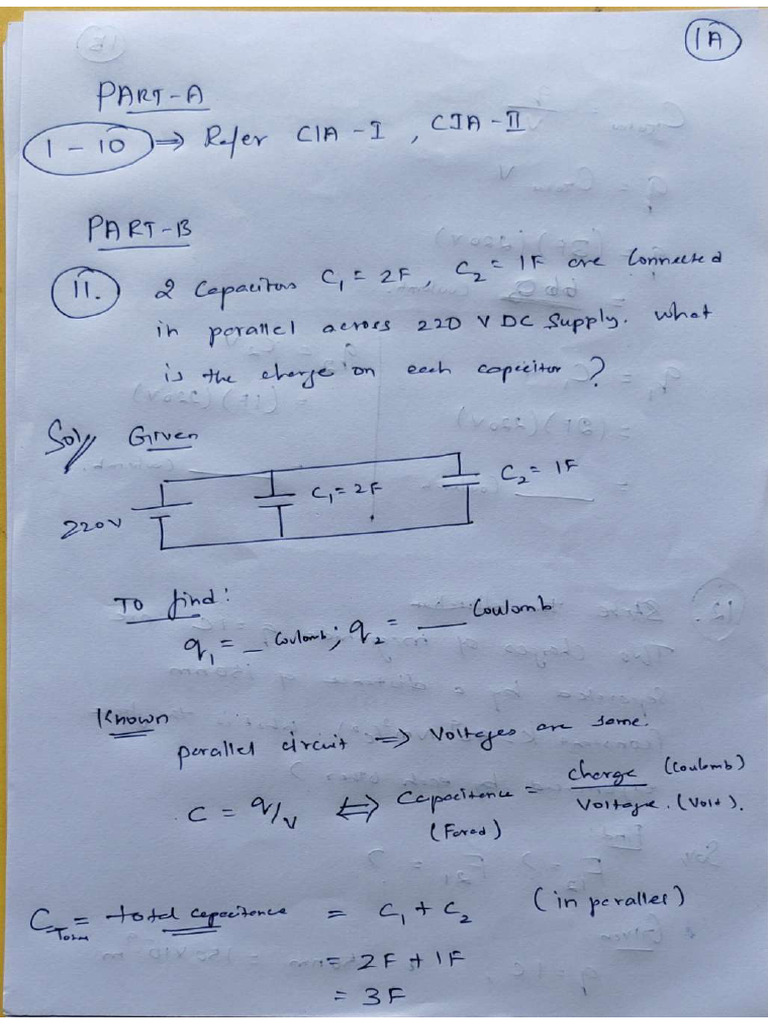 1A
PART-A
1 - 10 ⇒ Refer CIA - I , CIA - II
PART-B
11. 2 Capacitors C₁ = 2F, C₂ = 1F are connected
in parallel across 220 V DC Supply. What
is the charge on each capacitor?
Sol// Given
C₁ = 2F C₂ = 1F
220V
To find:
q₁ = _ Coulomb; q₂ = __ Coulomb
Known
parallel circuit ⇒ Voltages are same.
C = q/V ⇔ Capacitance = charge (Coulomb)
(Farad) Voltage. (Volt).
C = total capacitance = C₁ + C₂ (in parallel)
= 2F + 1F
= 3F